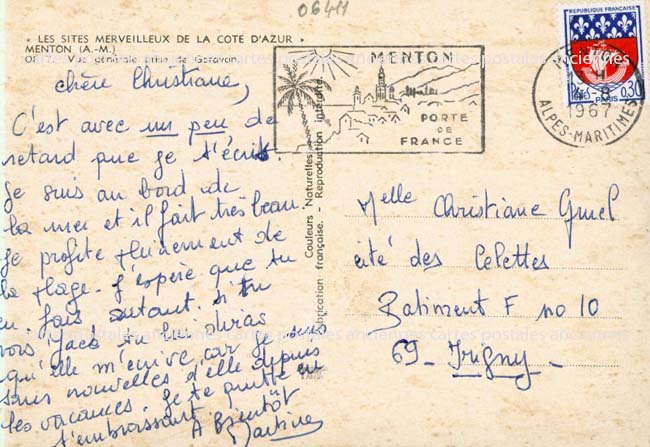 06411
" LES SITES MERVEILLEUX DE LA COTE D'AZUR "
MENTON (A.-M.)
Vue générale prise de Garavan.
chère Christiane,
C'est avec un peu de
retard que je t'écris.
Je suis au bord de
la mer et il fait très beau.
Je profite pleinement de
la plage. J'espère que tu
en fais autant. Si tu
vois tu lui diras
qu'elle m'écrive car je suis
sans nouvelles d'elle depuis
les vacances. Je te quitte en
t'embrassant
A Bientôt
Martine
Couleurs Naturelles
Fabrication française. - Reproduction interdite.
MENTON
PORTE
DE
FRANCE
REPUBLIQUE FRANÇAISE
PARIS
0,30
8
1967
ALPES-MARITIMES
Melle Christiane
cité des Celettes
Batiment F no 10
69 - Irigny -
cartes postales anciennes